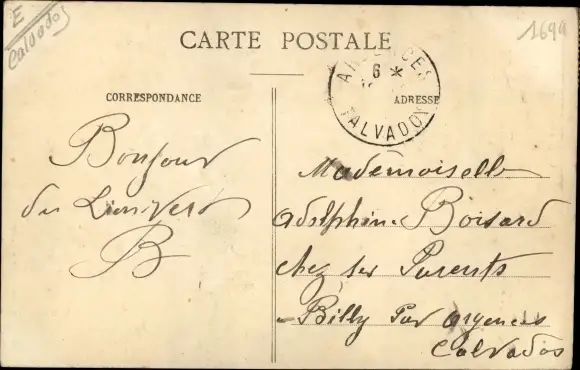 E
Calvados
1699
CARTE POSTALE
ARGENCES
6 *
CALVADOS
CORRESPONDANCE
ADRESSE
Bonjour
du
B
Mademoiselle
Adolphine Boisard
chez ses Parents
Billy Par Argences
Calvados